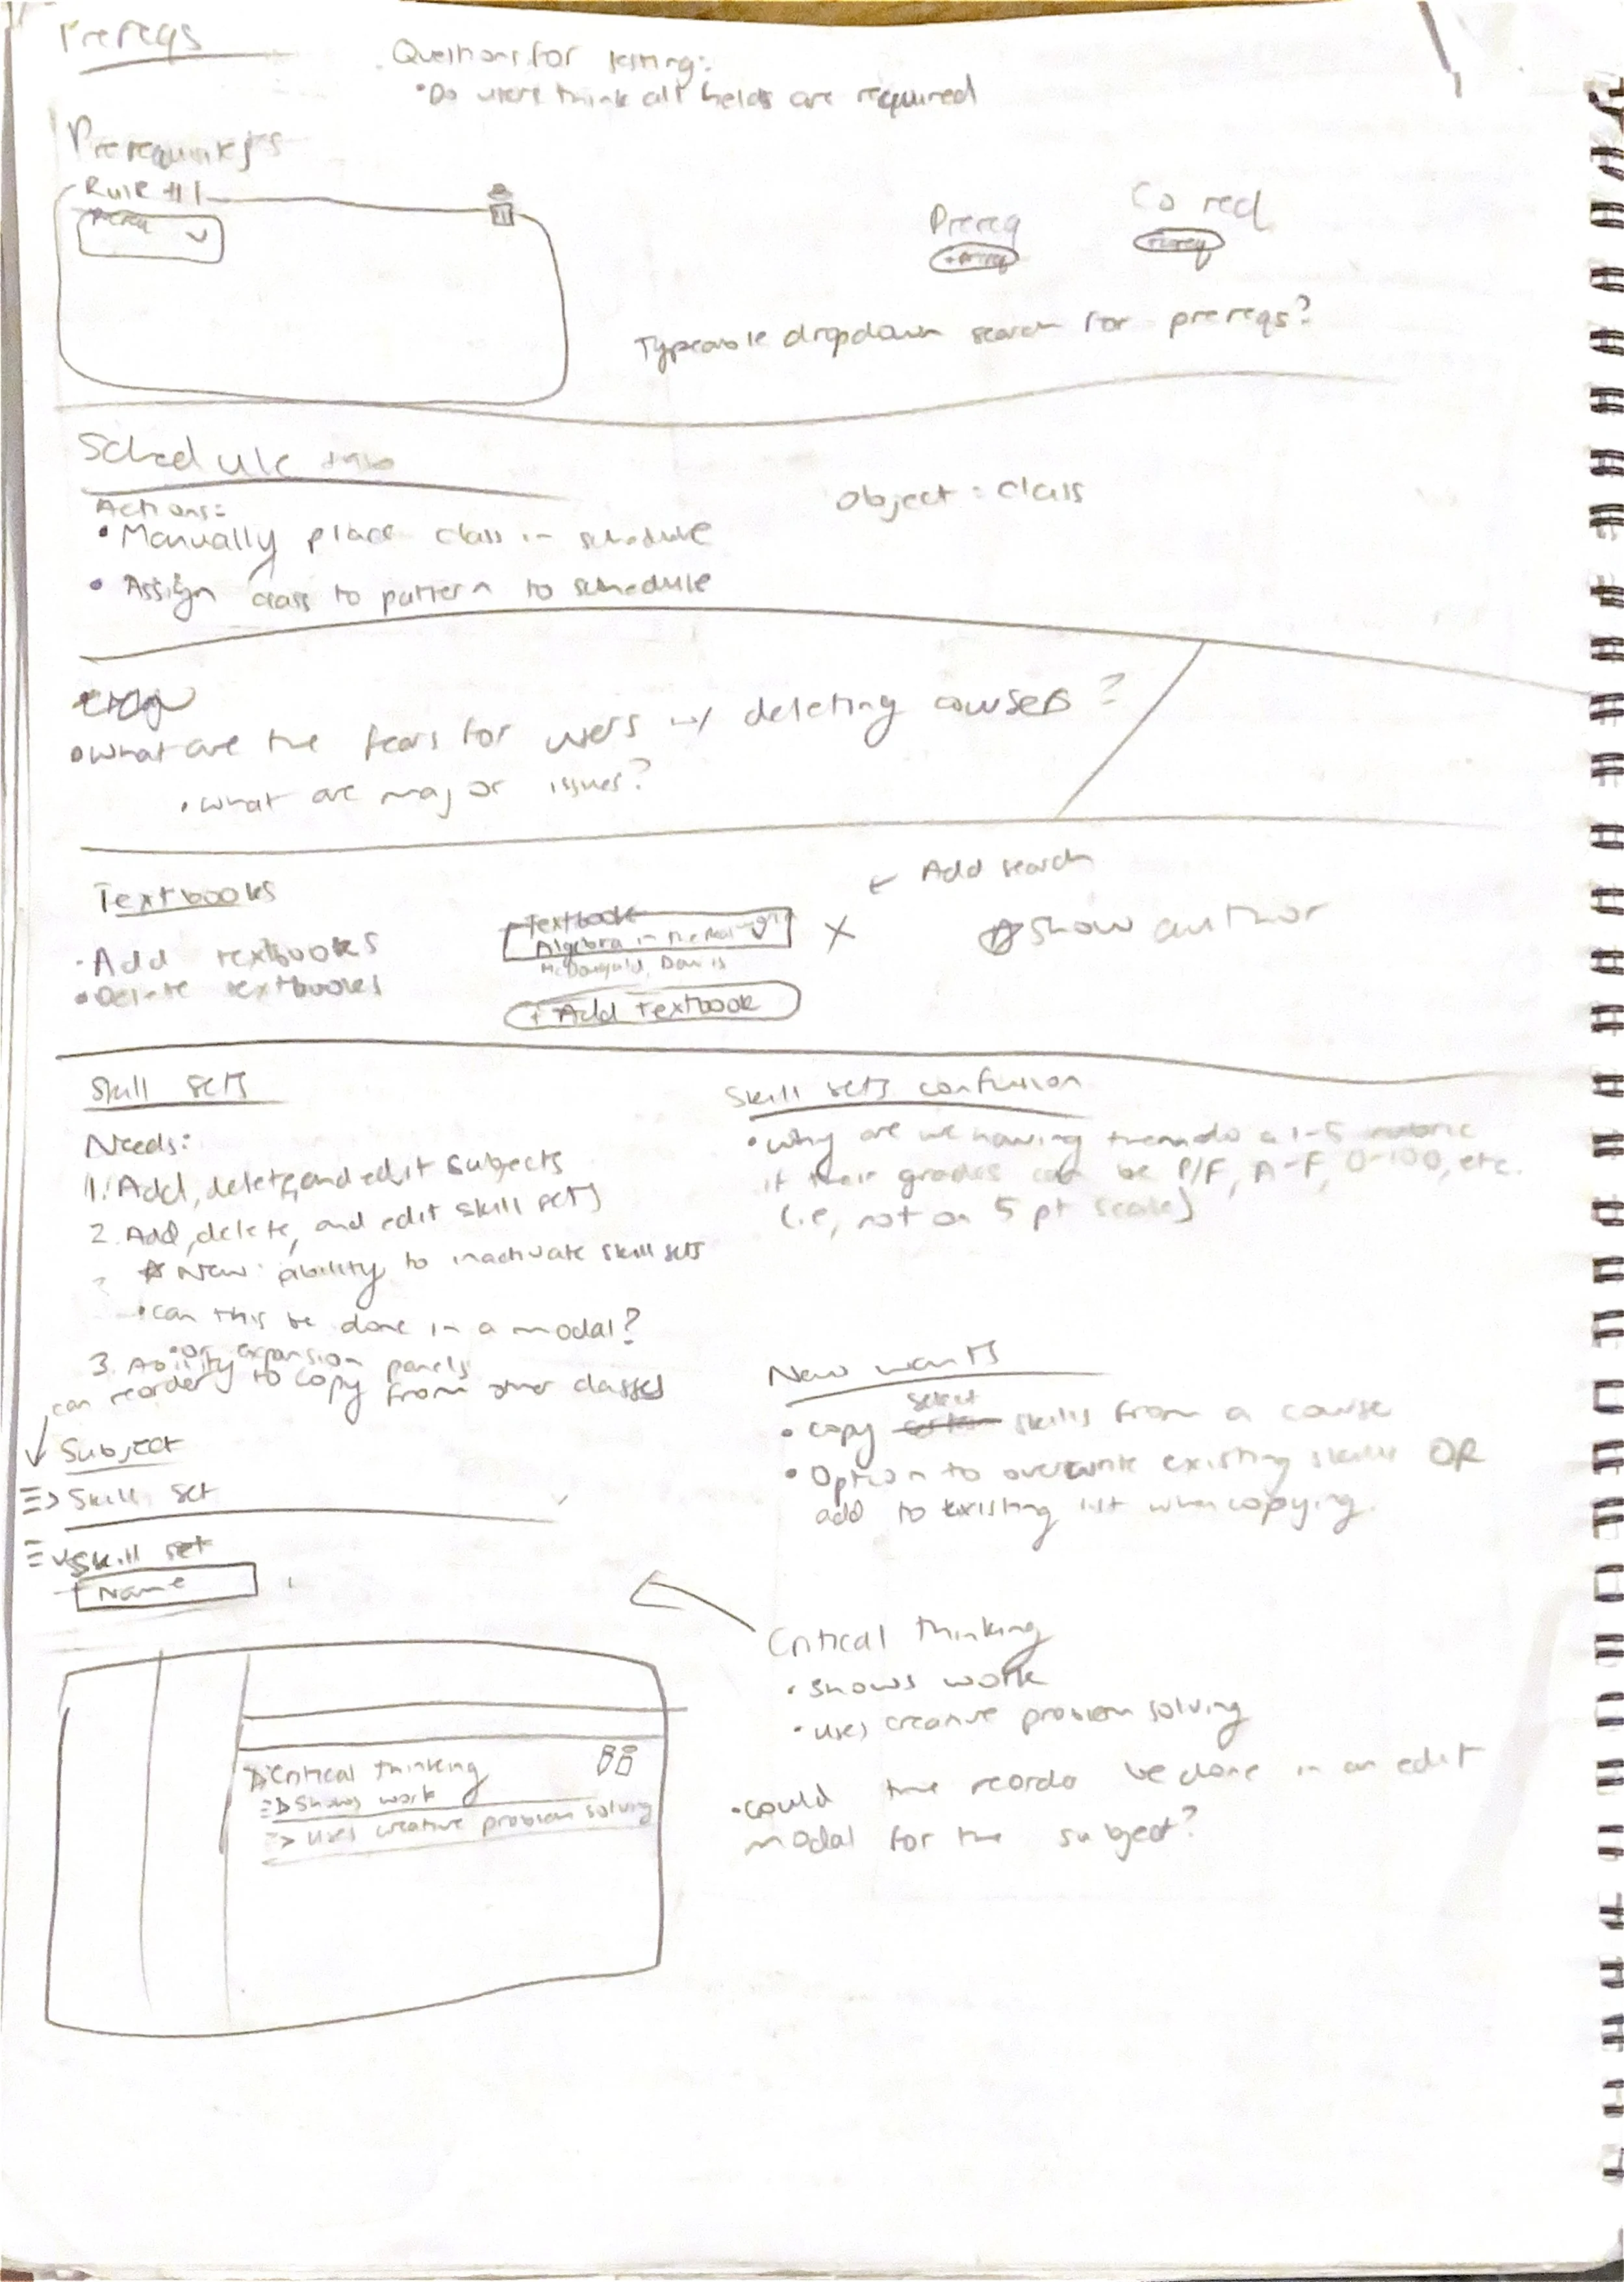 Prereqs
Questions for testing:
• Do users think all fields are required
Prerequisites
Rule #1
Prereq
Prereq
+ Prereq
Co req
Typeable dropdown search for prereqs?
Schedule
Actions:
Object: class
• Manually place class in schedule
• Assign class to pattern to schedule
• What are the fears for users w/ deleting courses?
• What are major issues?
Textbooks
• Add textbooks
• Delete textbooks
Textbook
Algebra in the
McDougald, Davis
+ Add Textbook
X
← Add search
☆ Show author
Skill sets
Needs:
1. Add, delete, and edit subjects
2. Add, delete, and edit skill sets
☆ New: ability to inactivate skill sets
• Can this be done in a modal?
• or expansion panels
3. Ability to copy from other classes
can reorder
↓ Subject
Skill set
Skill set
Name
Skill sets confusion
• Why are we having them do a 1-5 rubric
if their grades can be P/F, A-F, 0-100, etc.
(i.e, not on 5 pt scale)
New wants
select
• Copy skills from a course
• Option to overwrite existing skills OR
add to existing list when copying.
Critical thinking
• Shows work
• Uses creative problem solving
• Could the reorder be done in an edit
modal for the subject?
Critical thinking
Shows work
> Uses creative problem solving